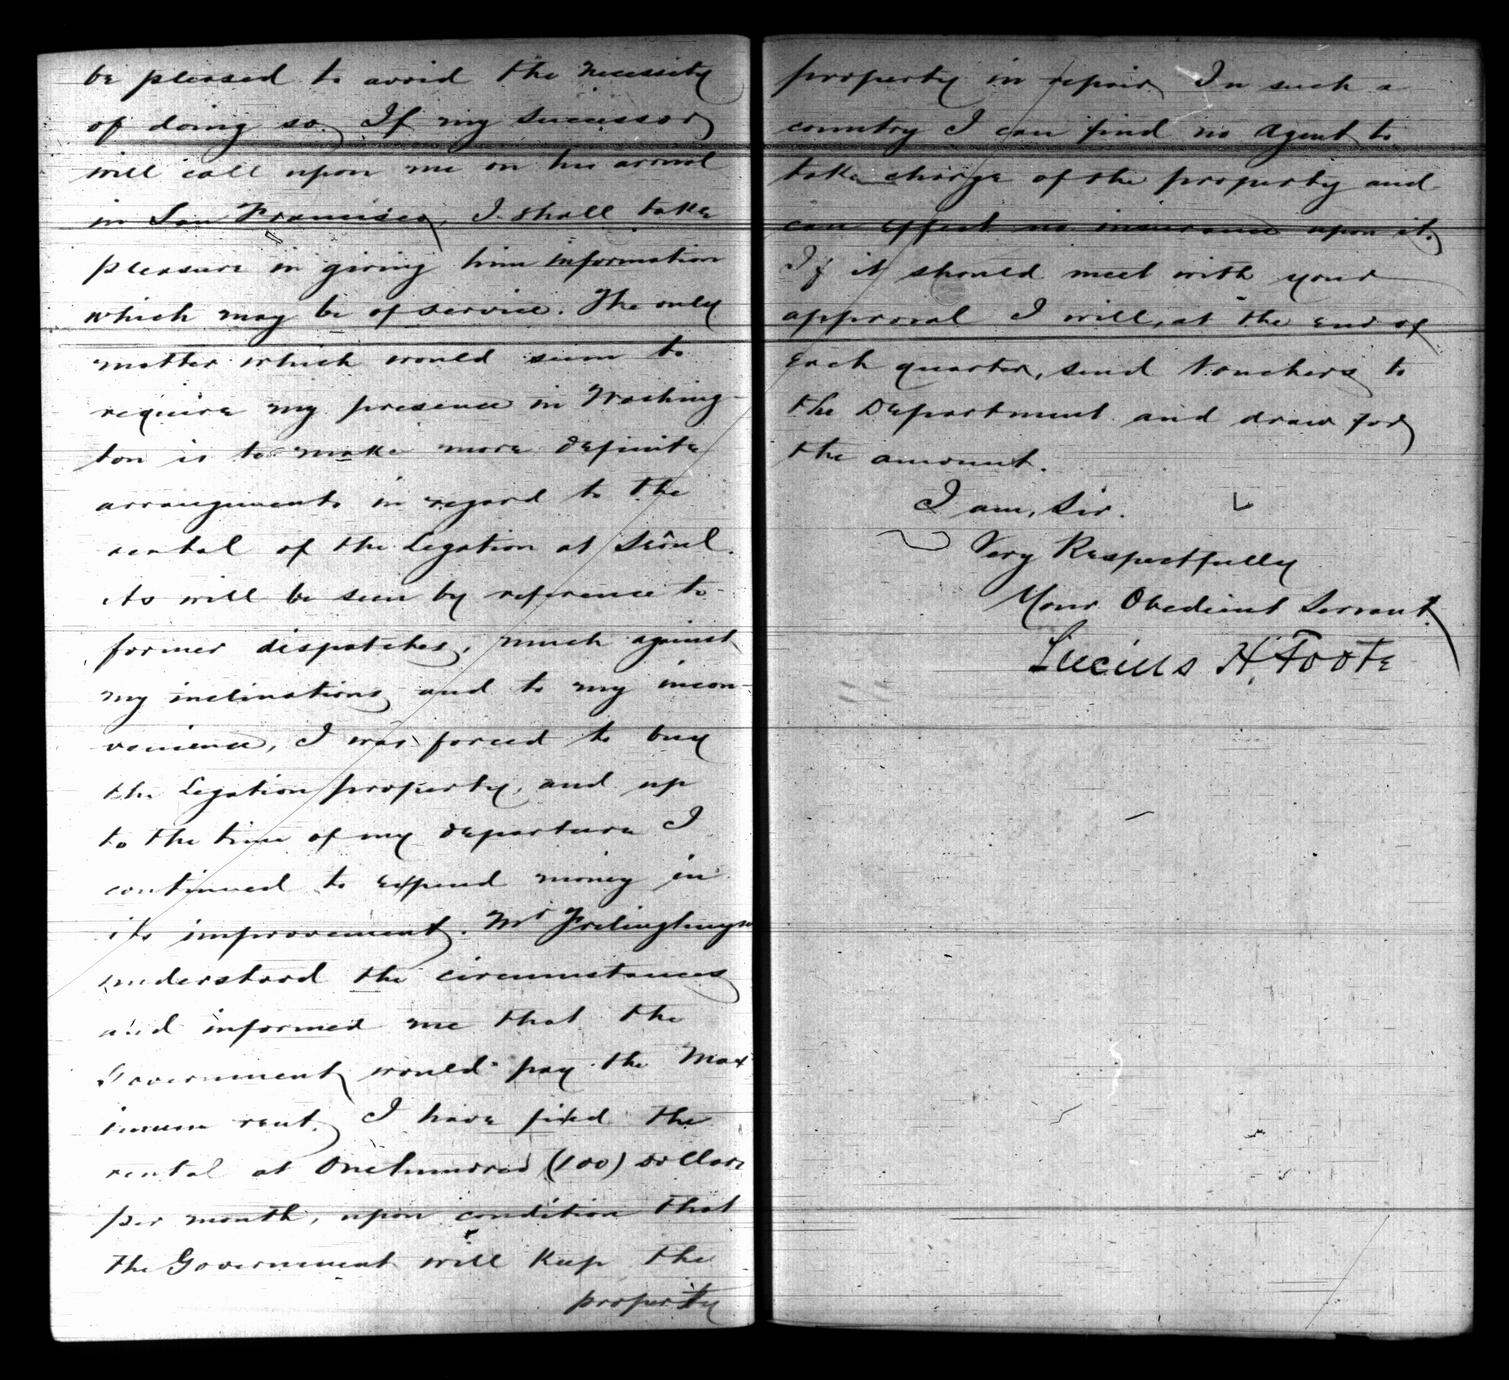 be pleased to avoid the necessity
of doing so. If my successor
will call upon me on his arrival
in San Francisco, I shall take
pleasure in giving him information
which may be of service. The only
matter which would seem to
require my presence in Washing-
ton is to make more definite
arrangements in regard to the
rental of the Legation at Sëoul.
As will be seen by reference to
former dispatches, much against
my inclinations and to my incon-
venience, I was forced to buy
the Legation property, and up
to the time of my departure I
continued to expend money in
its improvement. Mr Frelinghuysen
understood the circumstances
and informed me that the
Government would pay the Max
imum rent. I have fixed the
rental at One hundred (100) Dollars
per month, upon condition that
the Government will keep the
property
property in repair. In such a
country I can find no Agent to
take charge of the property and
can effect no insurance upon it.
If it should meet with your
approval I will, at the end of
each quarter, send vouchers to
the Department and draw for
the amount.
I am, Sir.
Very Respectfully
Your Obedient Servant.
Lucius H. Foote